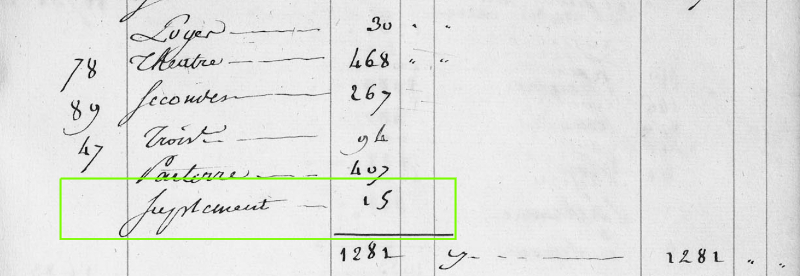 Loyer — 30 " "
78 Théatre — 468 " "
89 Secondes — 267
47 Trois.e — 94
Parterre — 407
Suplement — 15
1281 " — 1281 " "